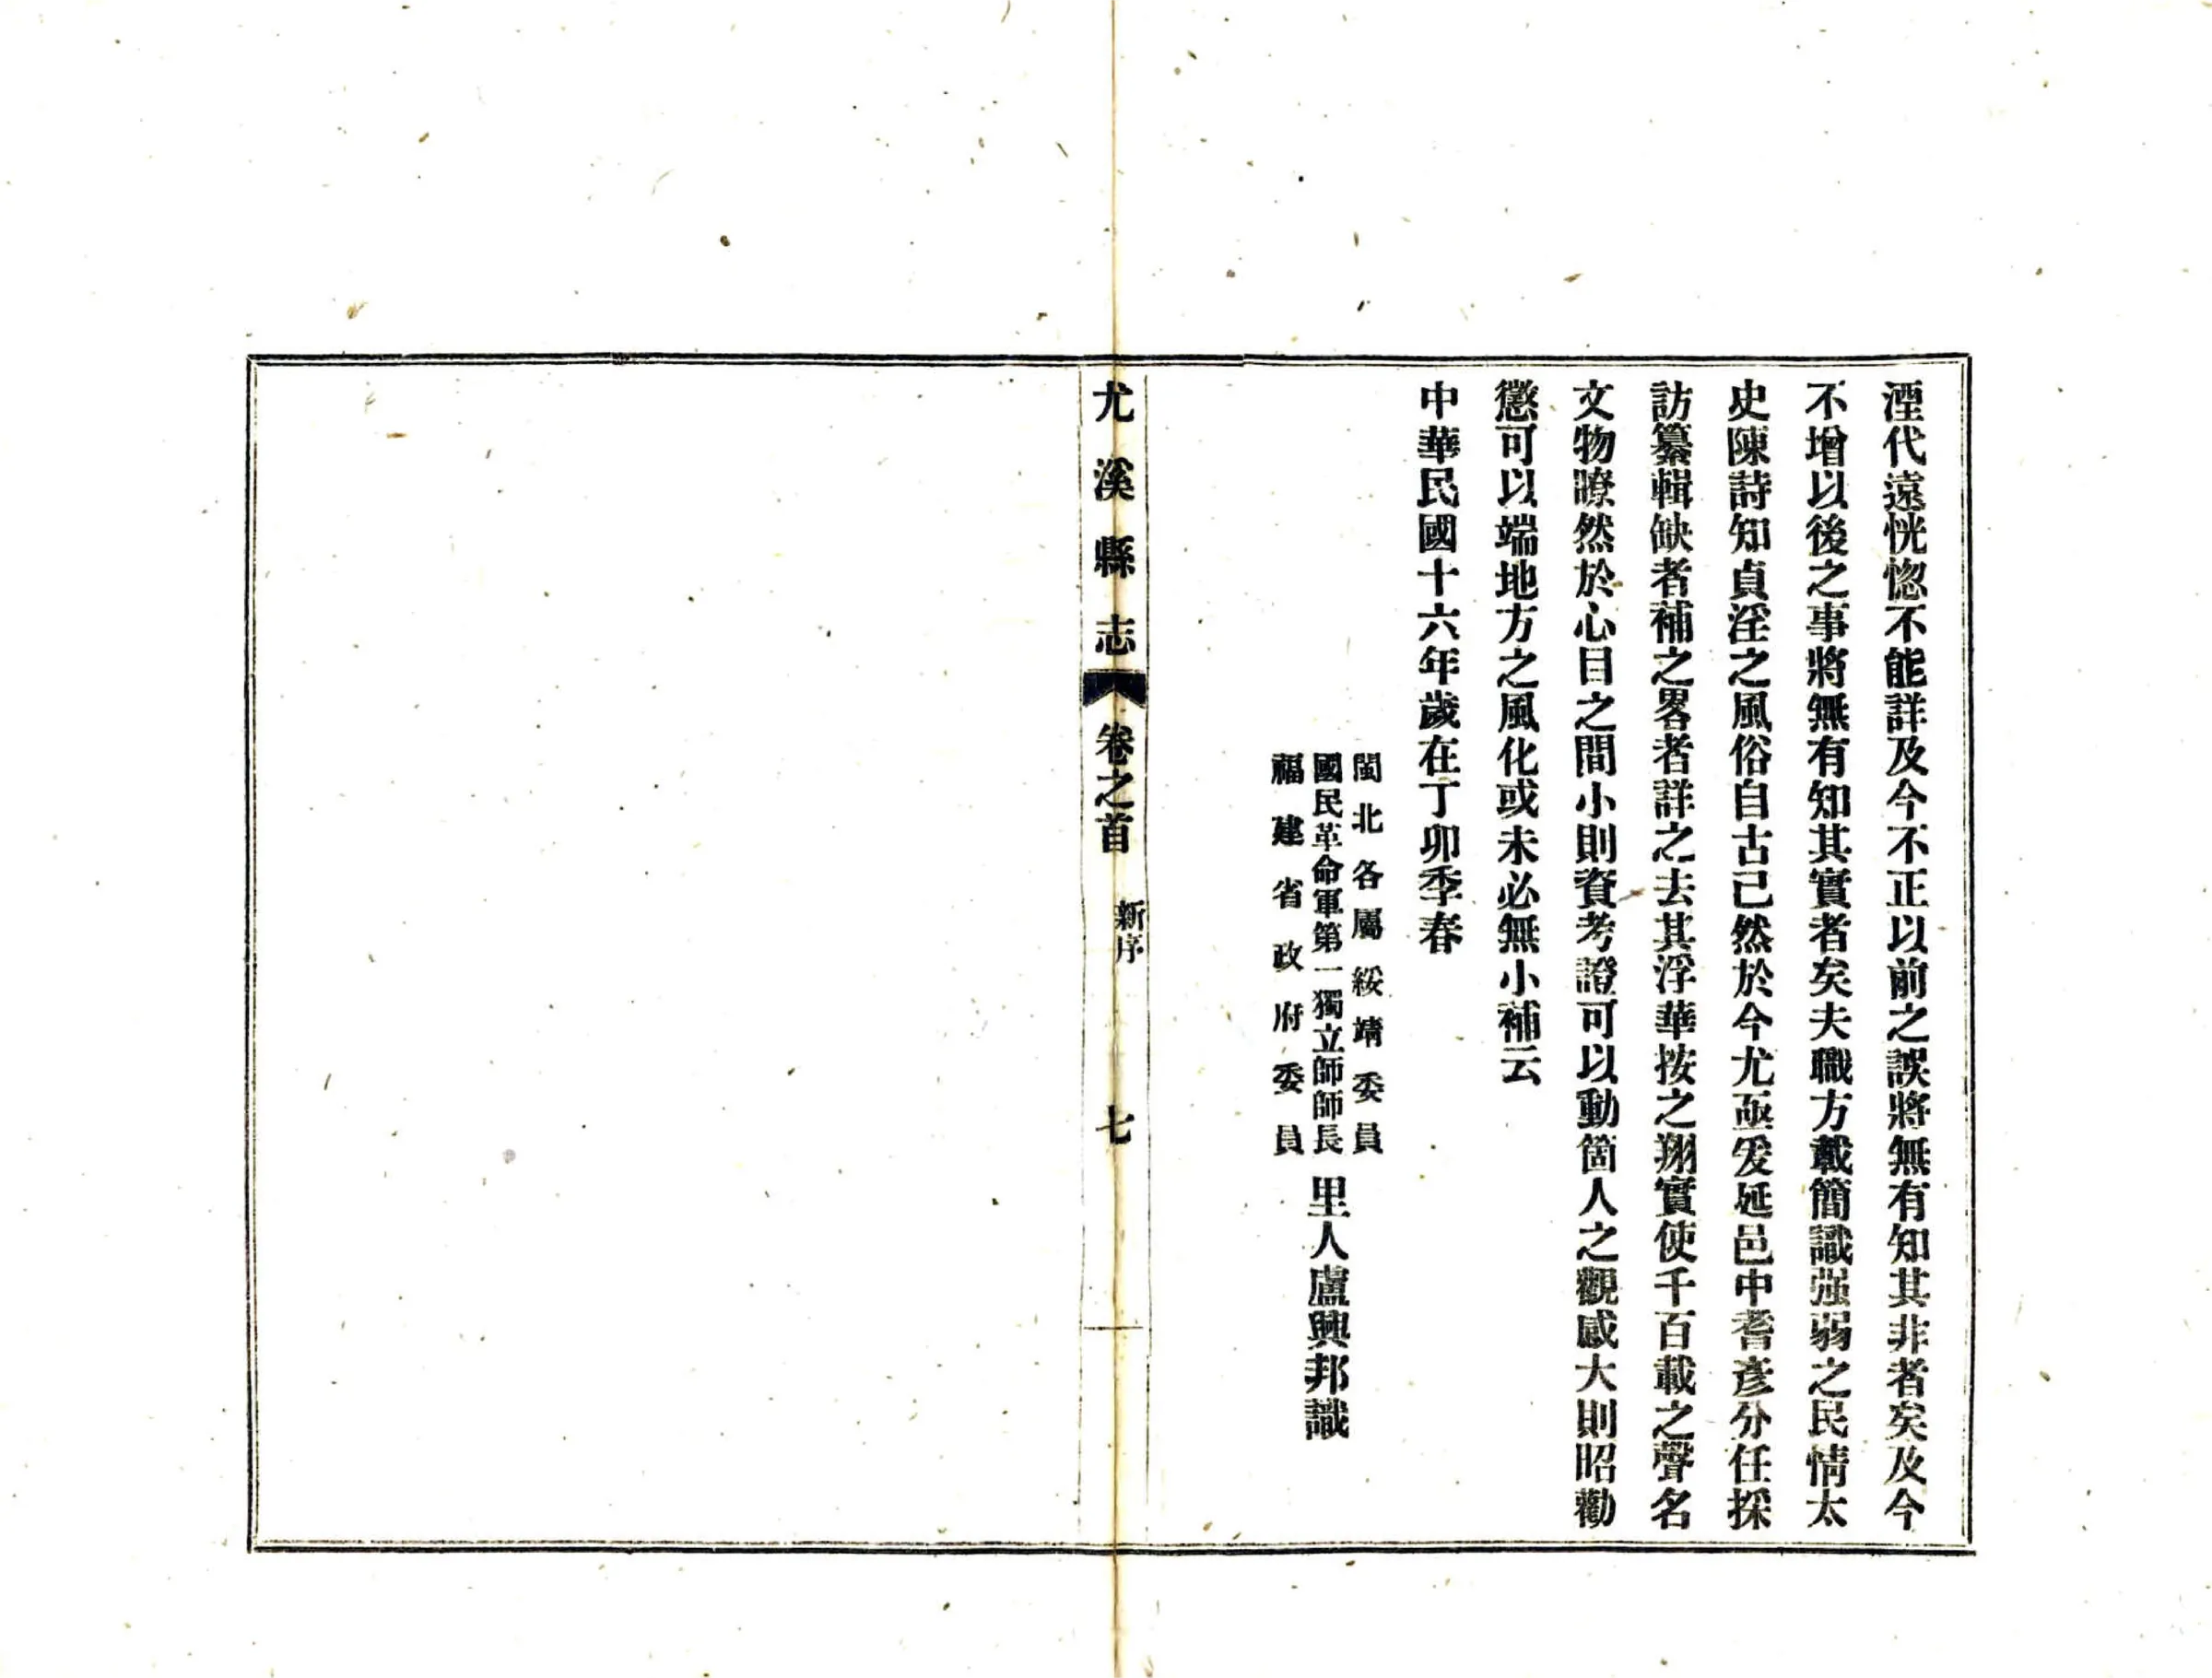 湮代遠恍惚不能詳及今不正以前之誤將無有知其非者矣及今
不增以後之事將無有知其實者矣夫職方載簡識强弱之民情太
史陳詩知貞淫之風俗自古已然於今尤亟爰延邑中耆彥分任採
訪纂輯缺者補之畧者詳之去其浮華按之翔實使千百載之聲名
文物暸然於心目之間小則資考證可以動箇人之觀感大則昭勸
懲可以端地方之風化或未必無小補云
中華民國十六年歲在丁卯季春
閩北各屬綏靖委員
國民革命軍第一獨立師師長
福建省政府委員
里人盧興邦識
尤溪縣志
卷之首
新序
七